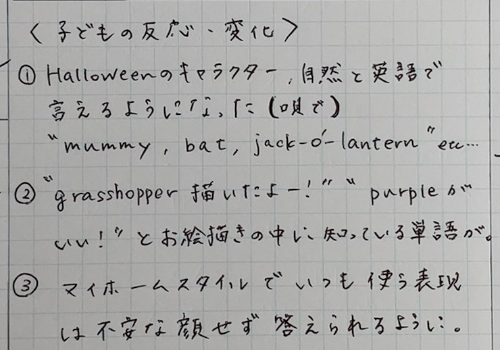 〈子どもの反応・変化〉
① Halloweenのキャラクター、自然と英語で
言えるようになった(唄で)
"mummy, bat, jack-o'-lantern" etc…
② "grasshopper 描いたよー!" "purpleが
いい!" とお絵描きの中に知っている単語が。
③ マイホームスタイルでいつも使う表現
は不安な顔せず答えられるように。